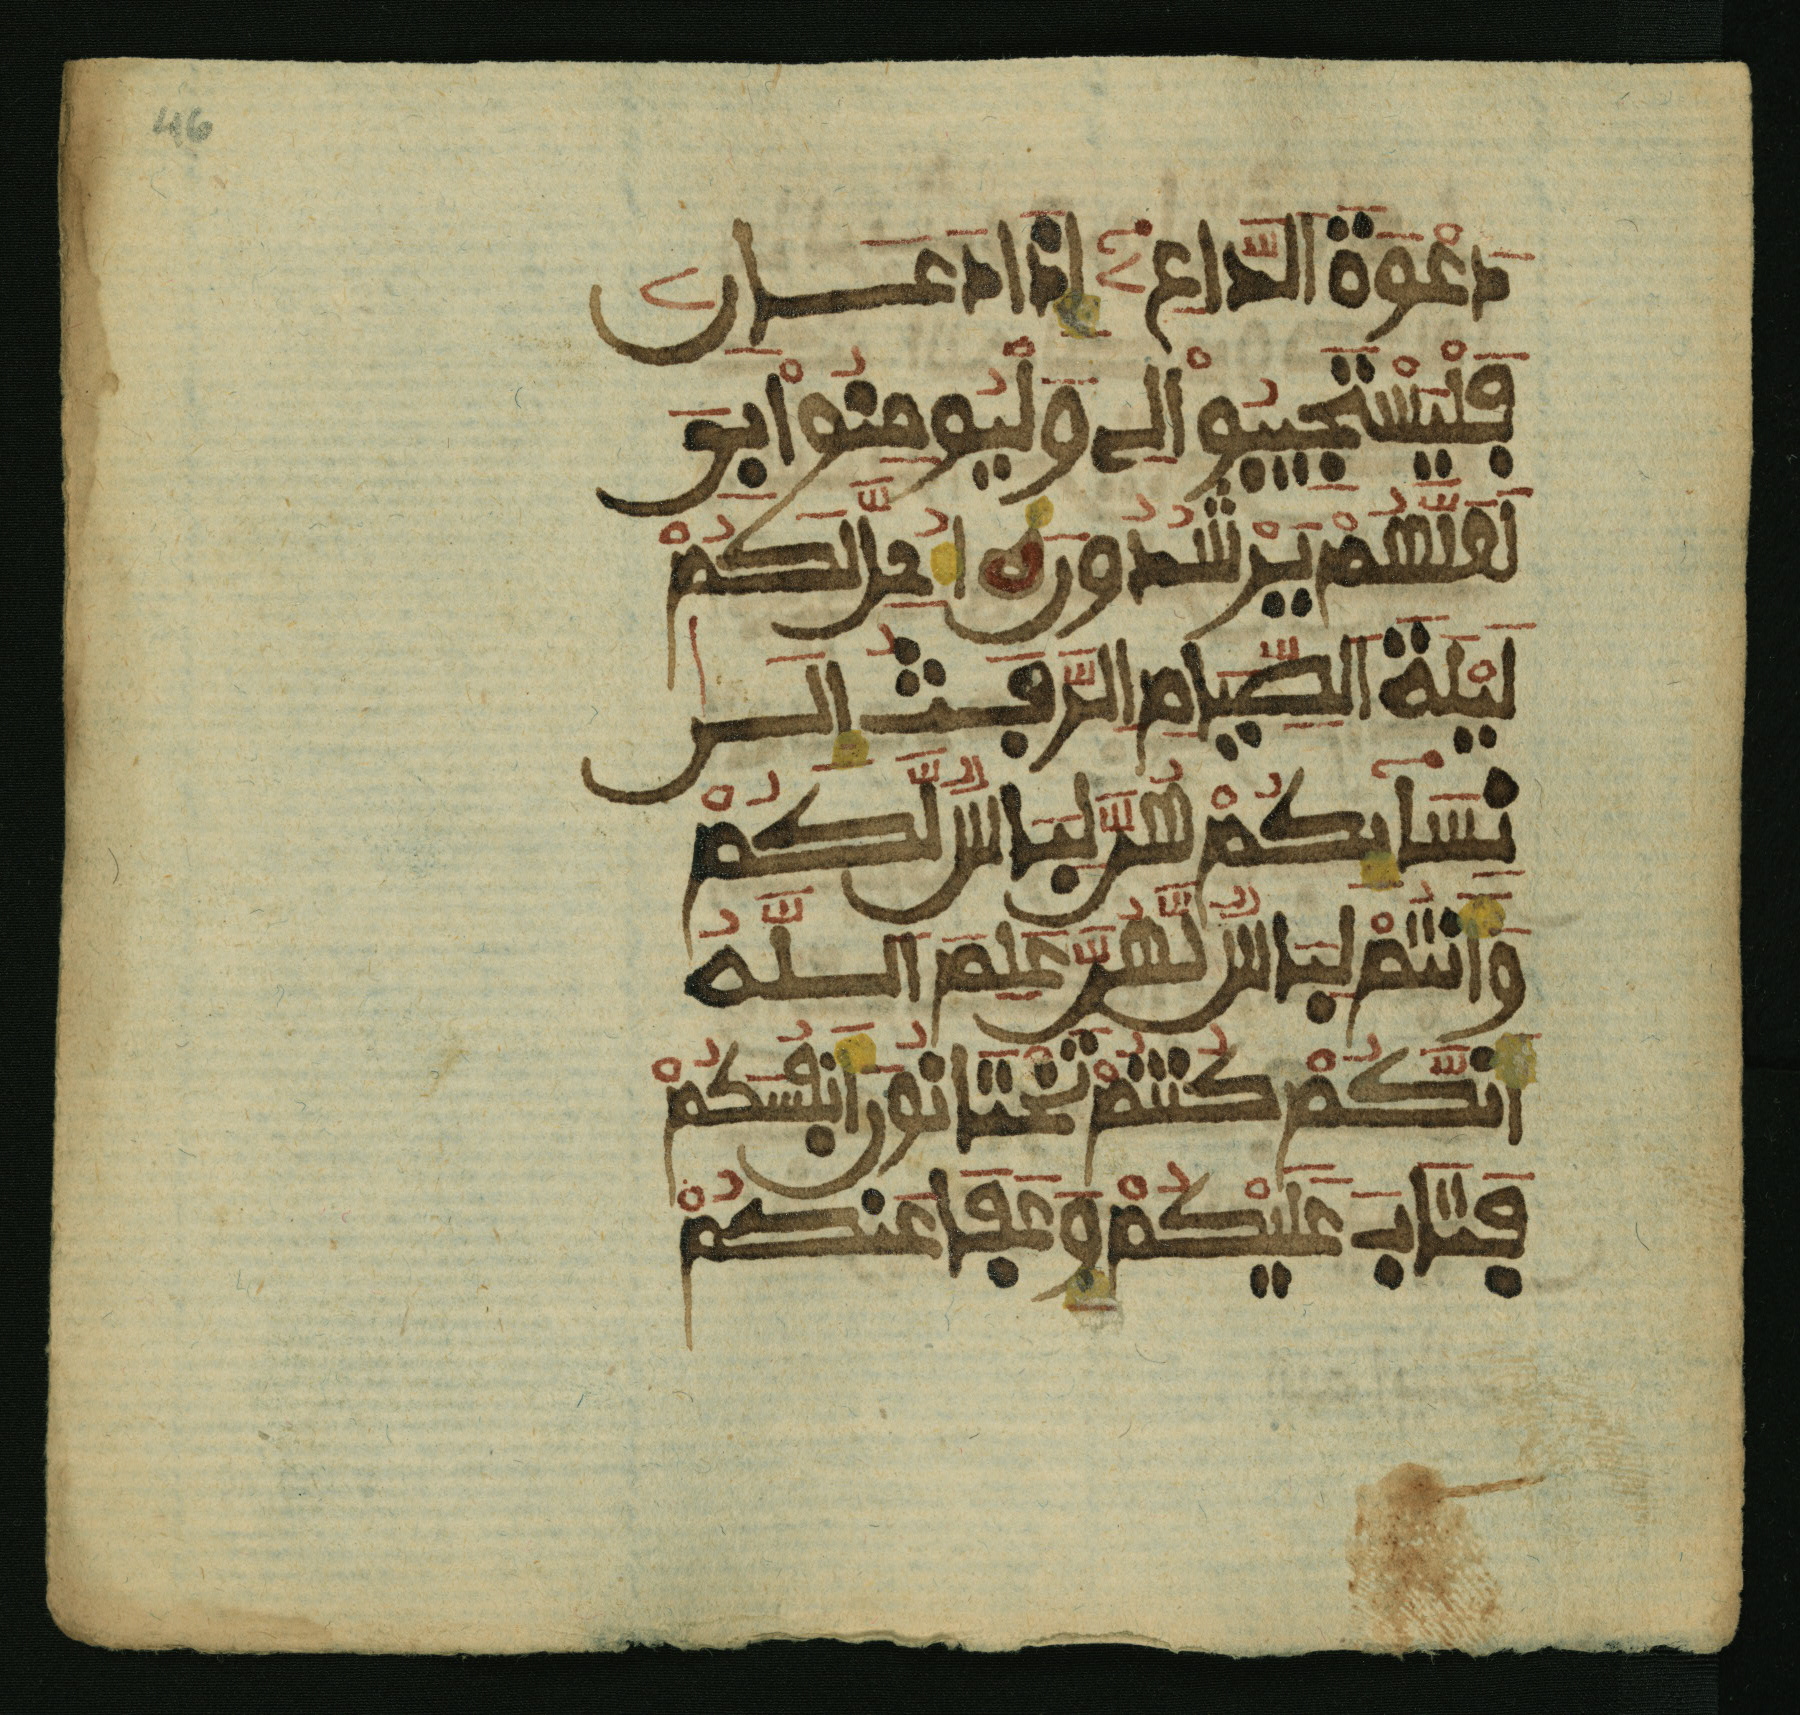 46
دَعْوَةَ الدَّاعِۦ إِذَا دَعَانِۦ
فَلْيَسْتَجِيبُواْ لِے وَلْيُومِنُواْ بِے
لَعَلَّهُمْ يَرْشُدُونَ أُحِلَّ لَكُمْ
لَيْلَةَ الصِّيَامِ الرَّفَثُ إِلَىٰ
نِسَآئِكُمْ هُنَّ لِبَاسٌ لَّكُمْ
وَأَنتُمْ لِبَاسٌ لَّهُنَّ عَلِمَ اللَّهُ
أَنَّكُمْ كُنتُمْ تَخْتَانُونَ أَنفُسَكُمْ
فَتَابَ عَلَيْكُمْ وَعَفَا عَنكُمْ